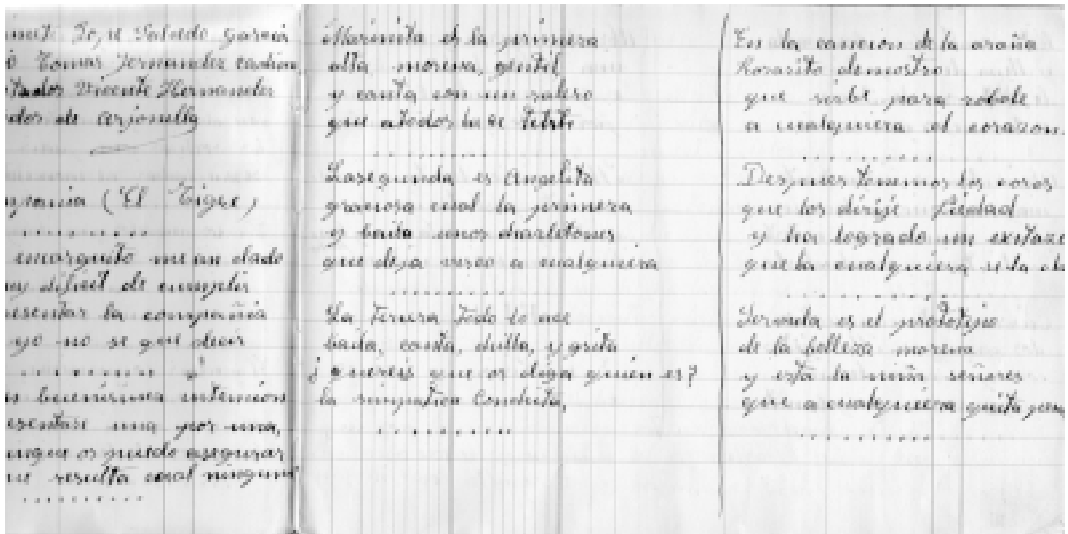 José Salcedo García
Tomas Fernandez
Vicente Hernandez
de arjonilla
(El Tigre)
encarguito me an dado
dificil de cumplir
la compañia
yo no se que decir
buenisima intencion
una por una,
os puedo asegurar
resulta cual ninguna
Marinita es la primera
alta morena, gentil
y canta con un salero
que atodos
Lasegunda es Angelita
graciosa cual la primera
y baila unos charlestones
que deja a cualquiera
La Tercera Todo lo
baila, canta, chilla, y grita
¿quereis que os diga quien es?
la simpatica Conchita,
En la cancion de la araña
Rosarito demostro
que sirbe para robale
a cualquiera el corazon
Despues tenemos los coros
que los dirije Piedad
y ha logrado un exitazo
que la cualquiera se la
es el prototipo
de la belleza morena
y esta la niña señores
que a cualquiera quita